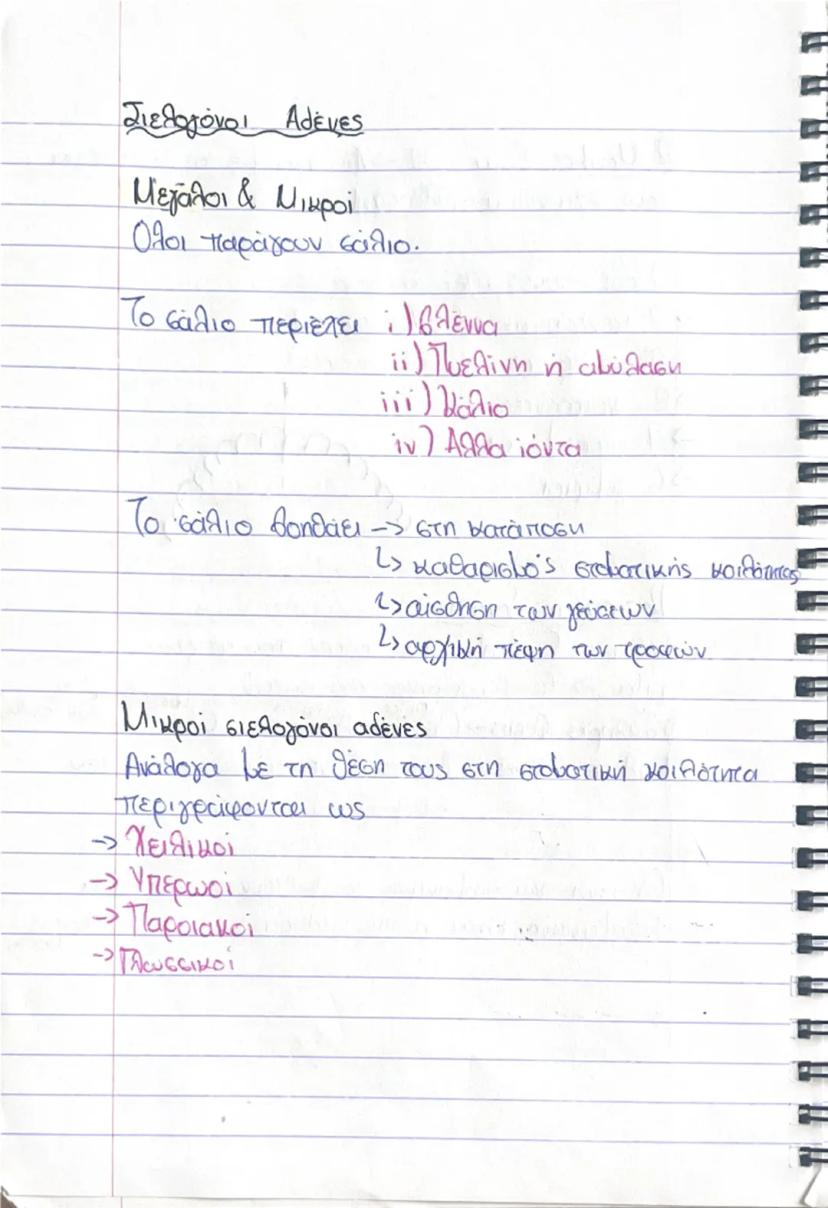 Σιελογόνοι Αδένες
Μεγάλοι & Μικροί
Όλοι παράγουν σάλιο.
Το σάλιο περιέχει i) βλέννα
ii) Πτυελίνη ή αμυλάση
iii) Κάλιο
iv) Άλλα ιόντα
Το σάλιο βοηθάει → στη κατάποση
↳ καθαρισμός στοματικής κοιλότητας
↳ αίσθηση των γεύσεων
↳ αρχική πέψη των τροφών
Μικροί σιελογόνοι αδένες
Ανάλογα με τη θέση τους στη στοματική κοιλότητα
περιγράφονται ως
→ Χειλικοί
→ Υπερωοί
→ Παρειακοί
→ Γλωσσικοί